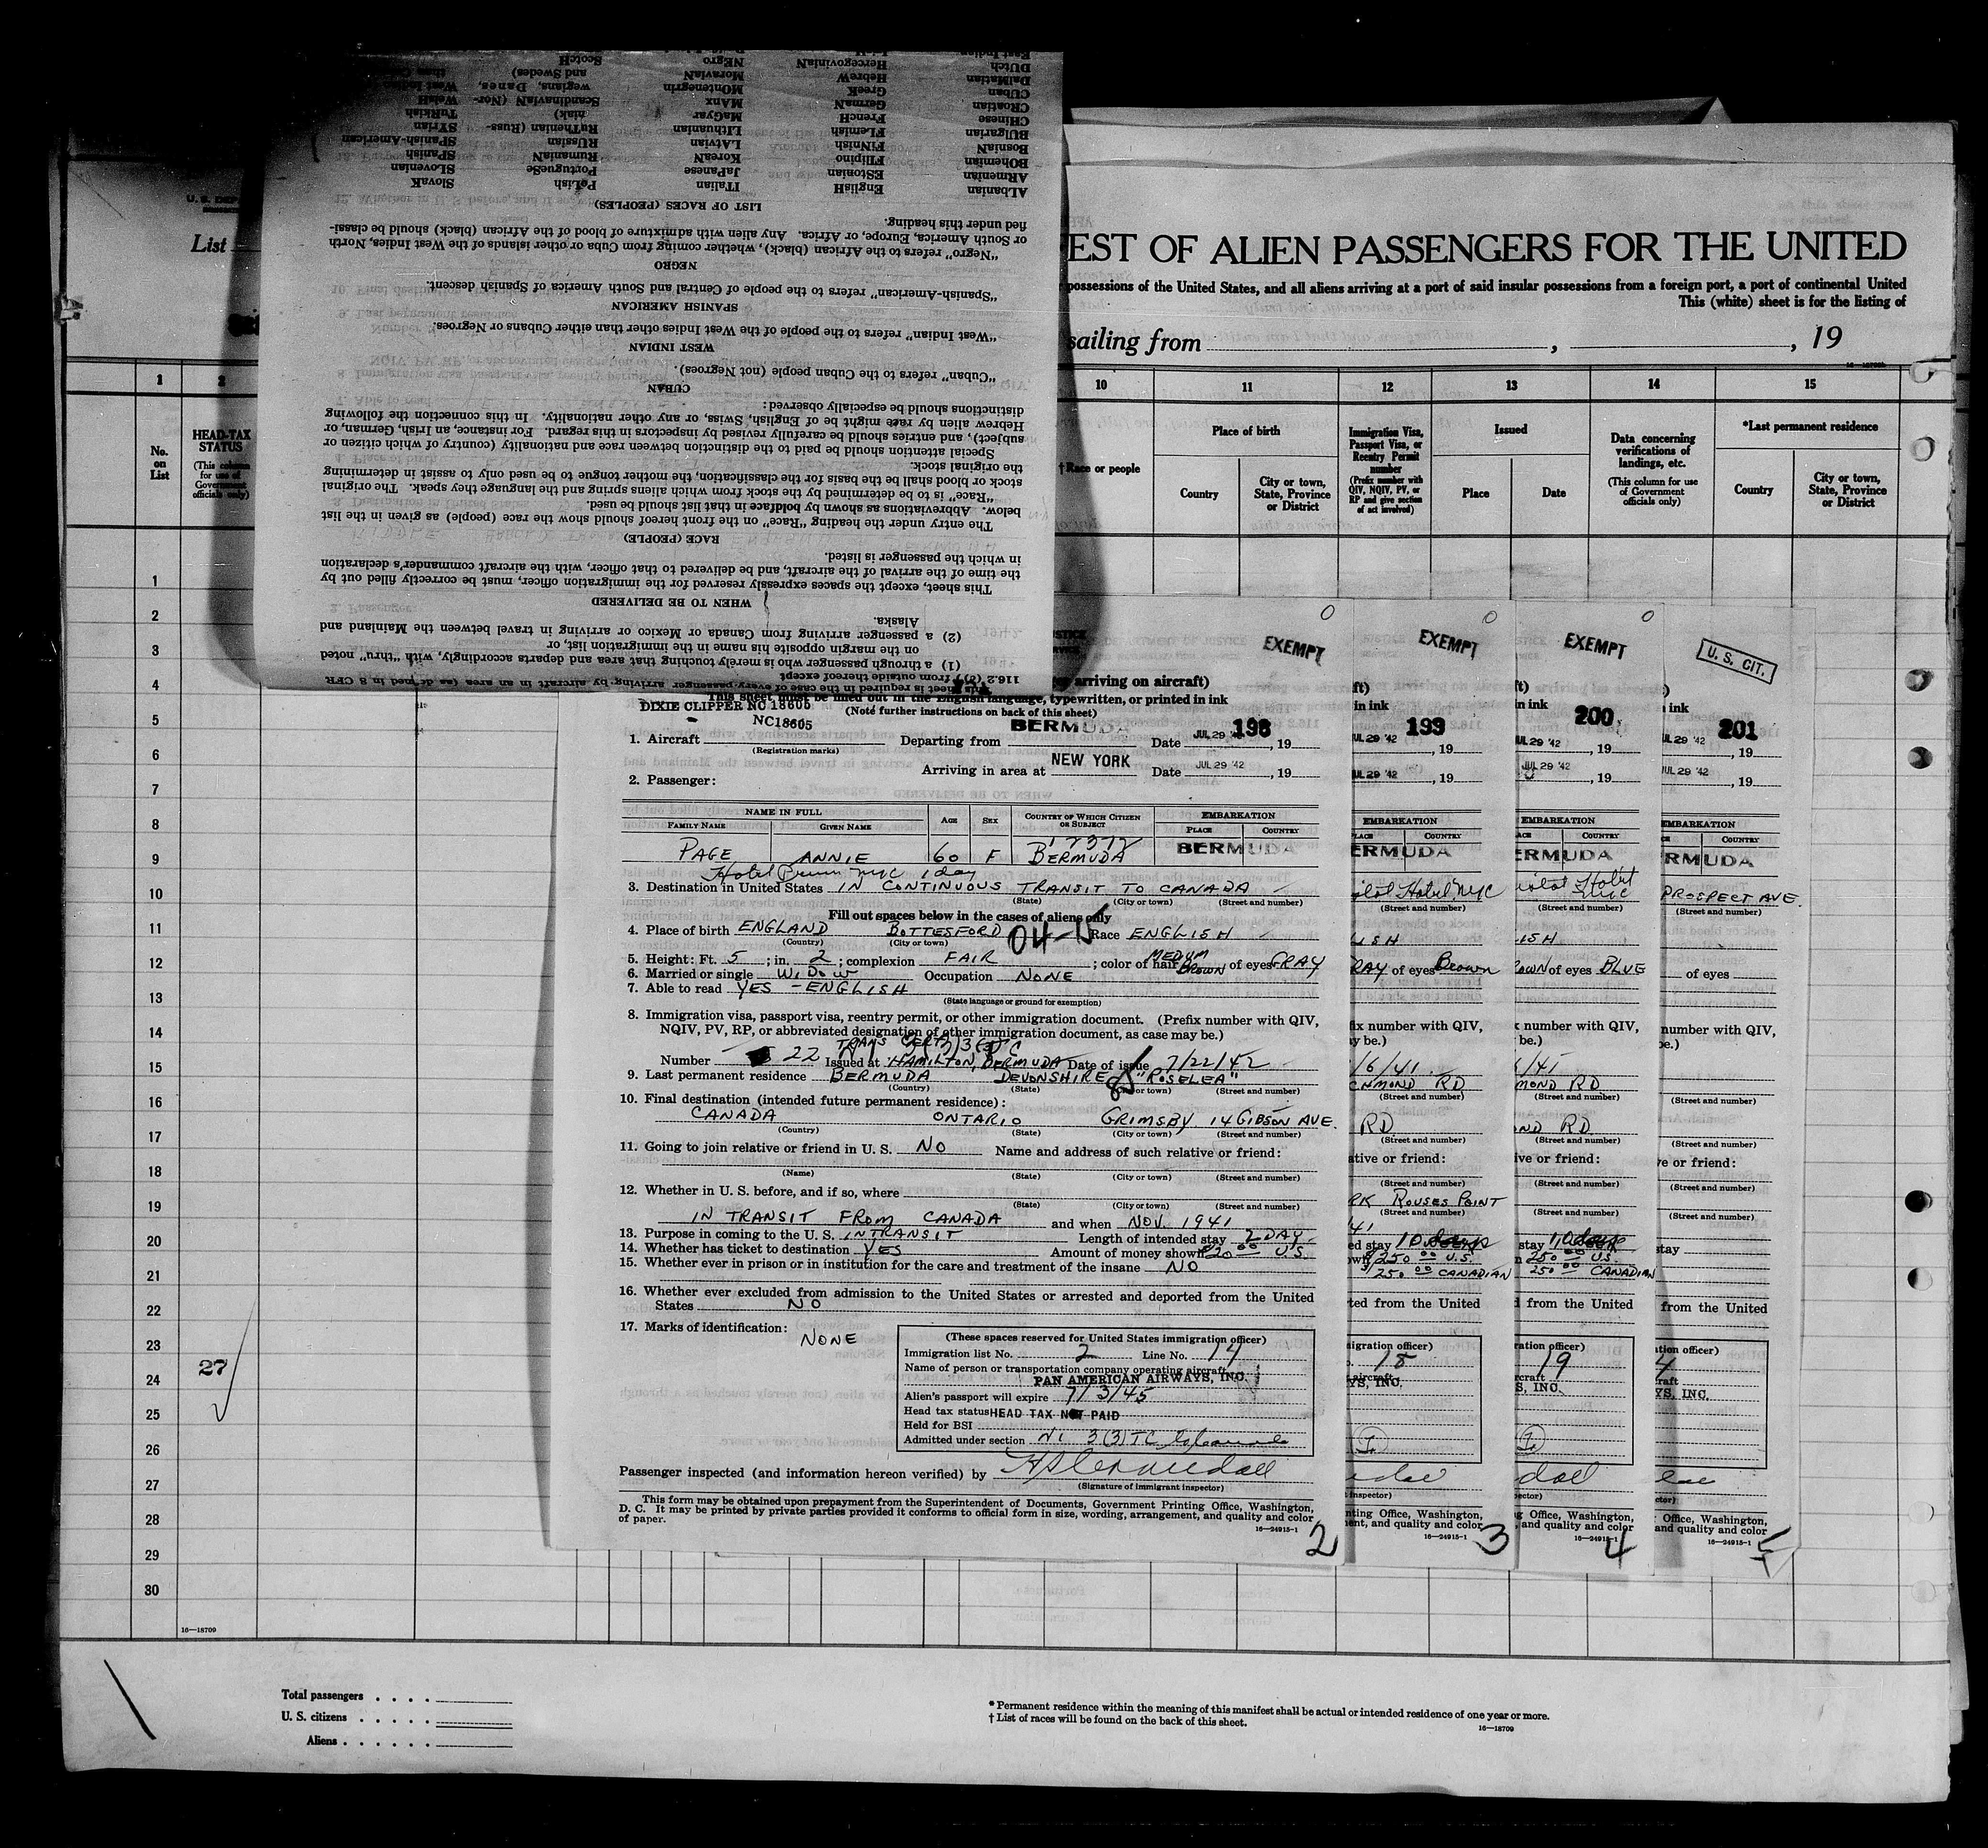 U. S. DEP
List
EST OF ALIEN PASSENGERS FOR THE UNITED
possessions of the United States, and all aliens arriving at a port of said insular possessions from a foreign port, a port of continental United
This (white) sheet is for the listing of
sailing from , , 19
1 2 10 11 12 13 14 15
No. on List
HEAD-TAX STATUS
(This column for use of Government officials only)
†Race or people
Place of birth
Country
City or town, State, Province or District
Immigration Visa, Passport Visa, or Reentry Permit number
(Prefix number with QIV, NQIV, PV, or RP and give section of act involved)
Issued
Place
Date
Data concerning verifications of landings, etc.
(This column for use of Government officials only)
*Last permanent residence
Country
City or town, State, Province or District
1
2
3
4
5
6
7
8
9
10
11
12
13
14
15
16
17
18
19
20
21
22
23
24
25
26
27
28
29
30
27
16—18709
Total passengers . . . .
U. S. citizens . . . . .
Aliens . . . . . .
* Permanent residence within the meaning of this manifest shall be actual or intended residence of one year or more.
† List of races will be found on the back of this sheet.
16—18709
This sheet is required in the case of every passenger arriving by aircraft in an area (as defined in 8 CFR
116.2 (d)) from outside thereof except
(1) a through passenger who is merely touching that area and departs accordingly, with "thru" noted
on the margin opposite his name in the immigration list, or
(2) a passenger arriving from Canada or Mexico or arriving in travel between the Mainland and
Alaska.
WHEN TO BE DELIVERED
This sheet, except the spaces expressly reserved for the immigration officer, must be correctly filled out by
the time of the arrival of the aircraft, and be delivered to that officer, with the aircraft commander's declaration
in which the passenger is listed.
RACE (PEOPLE)
The entry under the heading "Race" on the front hereof should show the race (people) as given in the list
below. Abbreviations as shown by boldface in that list should be used.
"Race" is to be determined by the stock from which aliens spring and the language they speak. The original
stock or blood shall be the basis for the classification, the mother tongue to be used only to assist in determining
the original stock.
Special attention should be paid to the distinction between race and nationality (country of which citizen or
subject), and entries should be carefully revised by inspectors in this regard. For instance, an Irish, German, or
Hebrew alien by race might be of English, Swiss, or any other nationality. In this connection the following
distinctions should be especially observed:
CUBAN
"Cuban" refers to the Cuban people (not Negroes).
WEST INDIAN
"West Indian" refers to the people of the West Indies other than either Cubans or Negroes.
SPANISH AMERICAN
"Spanish-American" refers to the people of Central and South America of Spanish descent.
NEGRO
"Negro" refers to the African (black), whether coming from Cuba or other islands of the West Indies, North
or South America, Europe, or Africa. Any alien with admixture of blood of the African (black) should be classi-
fied under this heading.
LIST OF RACES (PEOPLES)
ALbanian EnglisH ITalian PoLish SlovaK
ARmenian EStonian JaPanese PortugueSe SLOvenian
BOhemian FIlipino KoreaN RumaniaN SPanish
BosniaN FiNNish LAtvian RUssian SPAnish-American
BUlgarian FLemish LIthuanian RuThenian (Russ- SYrian
CHinese FrencH MaGyar niak) TuRkish
CRoatian GermaN MAnx Scandinavian (Nor- WelsH
CUban GreeK MOntenegrin wegians, Danes,
DalMatian HebreW MoraviaN and Swedes)
DUtch HercegoviniaN NEgro ScotcH
EXEMPT
arriving on aircraft)
This sheet must be filled out in the English language, typewritten, or printed in ink
(Note further instructions on back of this sheet)
DIXIE CLIPPER NC 18605
NC18605
1. Aircraft
(Registration marks)
Departing from BERMUDA Date JUL 29 '42 198, 19
Arriving in area at NEW YORK Date JUL 29 '42, 19
2. Passenger:
NAME IN FULL
FAMILY NAME GIVEN NAME AGE SEX COUNTRY OF WHICH CITIZEN OR SUBJECT EMBARKATION PLACE COUNTRY
PAGE ANNIE 60 F BERMUDA BERMUDA
3. Destination in United States IN CONTINUOUS TRANSIT TO CANADA
(State) (City or town) (Street and number)
Fill out spaces below in the cases of aliens only
4. Place of birth ENGLAND BOTTESFORD Race ENGLISH
(Country) (City or town)
5. Height: Ft. 5; in. 2; complexion FAIR; color of hair MEDIUM BROWN of eyes GRAY
6. Married or single WIDOW Occupation NONE
7. Able to read YES - ENGLISH
(State language or ground for exemption)
8. Immigration visa, passport visa, reentry permit, or other immigration document. (Prefix number with QIV,
NQIV, PV, RP, or abbreviated designation of other immigration document, as case may be.)
Number 22 Issued at HAMILTON, BERMUDA Date of issue 7/22/42
9. Last permanent residence BERMUDA DEVONSHIRE "ROSELEA"
(Country) (State) (City or town) (Street and number)
10. Final destination (intended future permanent residence):
CANADA ONTARIO GRIMSBY 14 GIBSON AVE.
(Country) (State) (City or town) (Street and number)
11. Going to join relative or friend in U. S. NO Name and address of such relative or friend:
(Name) (State) (City or town) (Street and number)
12. Whether in U. S. before, and if so, where
(State) (City or town) (Street and number)
IN TRANSIT FROM CANADA and when NOV. 1941
13. Purpose in coming to the U. S. IN TRANSIT Length of intended stay 2 DAY
14. Whether has ticket to destination YES Amount of money shown $20 00 U.S.
15. Whether ever in prison or in institution for the care and treatment of the insane NO
16. Whether ever excluded from admission to the United States or arrested and deported from the United
States NO
17. Marks of identification: NONE
(These spaces reserved for United States immigration officer)
Immigration list No. 2 Line No. 14
Name of person or transportation company operating aircraft
PAN AMERICAN AIRWAYS, INC.
Alien's passport will expire 7/3/45
Head tax status HEAD TAX NOT PAID
Held for BSI
Admitted under section 3(3) TC
Passenger inspected (and information hereon verified) by
(Signature of immigrant inspector)
This form may be obtained upon prepayment from the Superintendent of Documents, Government Printing Office, Washington,
D. C. It may be printed by private parties provided it conforms to official form in size, wording, arrangement, and quality and color
of paper.
16—24915-1
2
EXEMPT
in ink
199
JUL 29 '42, 19
JUL 29 '42, 19
EMBARKATION
COUNTRY
ERMUDA
Hotel NYC
(Street and number)
LISH
RAY of eyes Brown
fix number with QIV,
y be.)
/6/41
CHMOND RD
(Street and number)
RD
(Street and number)
ative or friend:
(Street and number)
RK ROUSES POINT
(Street and number)
41
ed stay 10 days
$250 00 U.S.
250 00 CANADIAN
ted from the United
migration officer)
18
aircraft
YS, INC.
inspector)
nting Office, Washington,
ent, and quality and color
16—24915-1
3
EXEMPT
n ink
200
JUL 29 '42, 19
JUL 29 '42, 19
EMBARKATION
COUNTRY
ERMUDA
Hotel
NYC
(Street and number)
ISH
OWN of eyes BLUE
x number with QIV,
be.)
/41
MOND RD
(Street and number)
OND RD.
(Street and number)
ive or friend:
(Street and number)
(Street and number)
stay 10 days
250 00 U.S.
250 00 CANADIAN
d from the United
ration officer)
19
rcraft
S, INC.
pector)
g Office, Washington,
, and quality and color
16—24915-1
4
U. S. CIT.
ink
201
JUL 29 '42, 19
JUL 29 '42, 19
MBARKATION
COUNTRY
RMUDA
PROSPECT AVE.
(Street and number)
of eyes
number with QIV,
e.)
(Street and number)
(Street and number)
e or friend:
(Street and number)
(Street and number)
stay
from the United
ation officer)
4
raft
YS, INC.
ctor)
Office, Washington,
and quality and color
16—24915-1
5